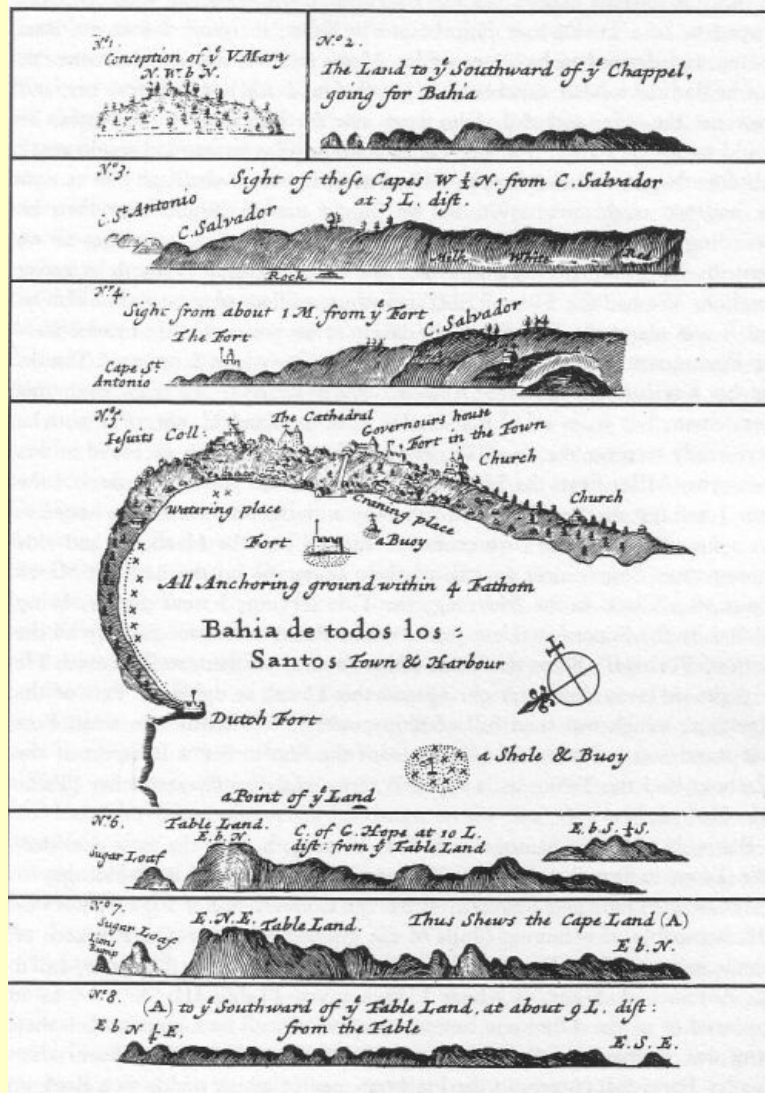 N.º 1.
Conception of yͤ V. Mary
N. W. b N.
N.º 2
The Land to yͤ Southward of yͤ Chappel,
going for Bahia
N.º 3.
Sight of theſe Capes W ½ N. from C. Salvador
at 3 L. diſt.
C. St. Antonio
C. Salvador
Milk White Red
Rock
N.º 4.
Sight from about 1 M. from yͤ Fort
C. Salvador
The Fort
Cape St
Antonio
N.º 5.
Jeſuits Coll:
The Cathedral
Governours houſe
Fort in the Town
Church
Church
watering place
Craning place
Fort
a Buoy
All Anchoring ground within 4 Fathom
Bahia de todos los :
Santos Town & Harbour
Dutch Fort
a Shole & Buoy
a Point of yͤ Land
N.º 6.
Table Land.
E. b. N.
C. of G. Hope at 10 L.
diſt from yͤ Table Land
E. b S. ½ S.
Sugar Loaf
N.º 7.
E. N. E. Table Land.
Thus Shews the Cape Land (A)
Sugar Loaf
Lions
Rump
E b. N.
N.º 8.
(A) to yͤ Southward of yͤ Table Land, at about 9 L. diſt:
from the Table
E b N ½ E.
E. S. E.